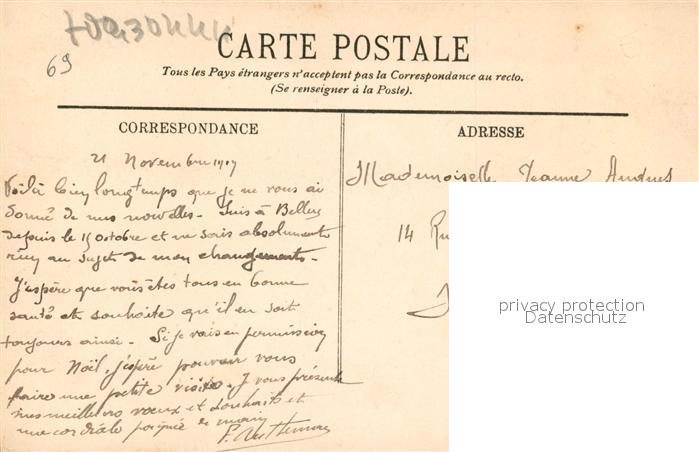 69
CARTE POSTALE
Tous les Pays étrangers n'acceptent pas la Correspondance au recto.
(Se renseigner à la Poste).
CORRESPONDANCE
ADRESSE
21 Novembre 1917
Voilà bien longtemps que je ne vous ai
donné de mes nouvelles - Suis à Belley
depuis le 15 octobre et ne sais absolument
rien au sujet de mon changement -
J'espère que vous êtes tous en bonne
santé et souhaite qu'il en soit
toujours ainsi - Si je vais en permission
pour Noël, j'espère pouvoir vous
faire une petite visite. Je vous présente
mes meilleurs vœux et souhaits et
une cordiale poignée de main
Mademoiselle Jeanne
14 Ru
privacy protection
Datenschutz